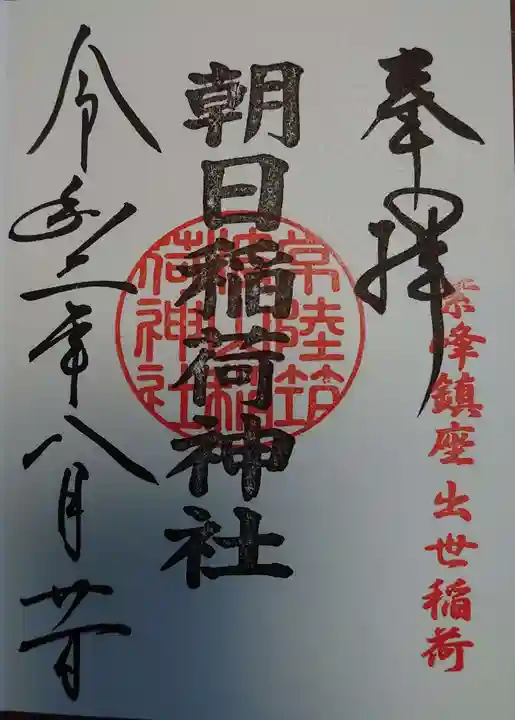 奉拝
紫峰鎮座出世稲荷
朝日稲荷神社
常陸筑
荷神社
令和三年八月廿日